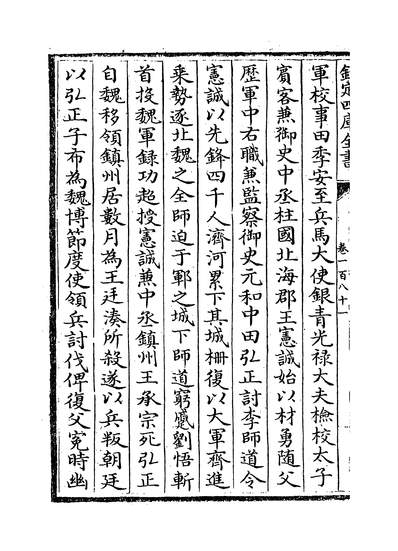 欽定四庫全書
卷一百八十一
軍校事田季安至兵馬大使銀青光祿大夫檢校太子
賓客兼御史中丞柱國北海郡王憲誠始以材勇随父
歷軍中右職兼監察御史元和中田弘正討李師道令
憲誠以先鋒四千人濟河累下其城柵復以大軍齊進
乘勢逐北魏之全師迫于鄆之城下師道窮蹙劉悟斬
首投魏軍録功超授憲誠兼中丞鎮州王承宗死弘正
自魏移領鎮州居數月為王廷湊所殺遂以兵叛朝廷
以弘正子布為魏博節度使領兵討伐俾復父寃時幽